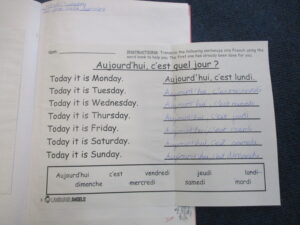 INSTRUCTIONS: Translate the following sentences into French using the
word bank to help you. The first one has already been done for you.
Aujourd'hui, c'est quel jour ?
Today it is Monday. Aujourd'hui, c'est lundi.
Today it is Tuesday. Aujourd'hui, c'est
Today it is Wednesday. Aujourd'hui, c'est
Today it is Thursday. Aujourd'hui, c'est jeudi
Today it is Friday. Aujourd'hui, c'est
Today it is Saturday. Aujourd'hui, c'est
Today it is Sunday. Aujourd'hui, c'est dimanche.
Aujourd'hui c'est vendredi jeudi lundi
dimanche mercredi samedi mardi
LANGUAGE ANGELS